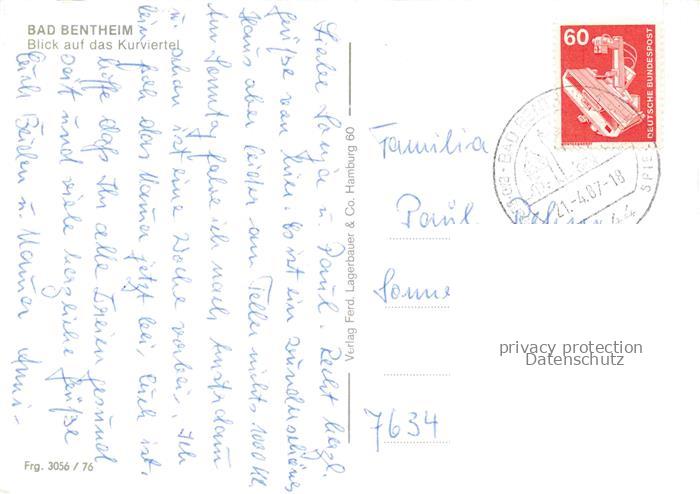 BAD BENTHEIM
Blick auf das Kurviertel
Liebe Sonja u. Paul. Recht herzl.
Grüße von hier. Es ist ein wunderschönes
Haus aber leider am Teller nichts 1000 Kl.
Am Sonntag fahre ich nach
u. schon ist eine Woche vorbei, Ich
bin froh das Mama jetzt bei Euch ist.
hoffe daß Ihr alle Dreien gesund
seit und viele herzliche Grüße
Euch Beiden u. Mama
Frg. 3056 / 76
Verlag Ferd. Lagerbauer & Co. Hamburg 60
60
DEUTSCHE BUNDESPOST
BAD BENTHEIM
21.-4.87-18
Familie
Paul
Sonne
7634
privacy protection
Datenschutz